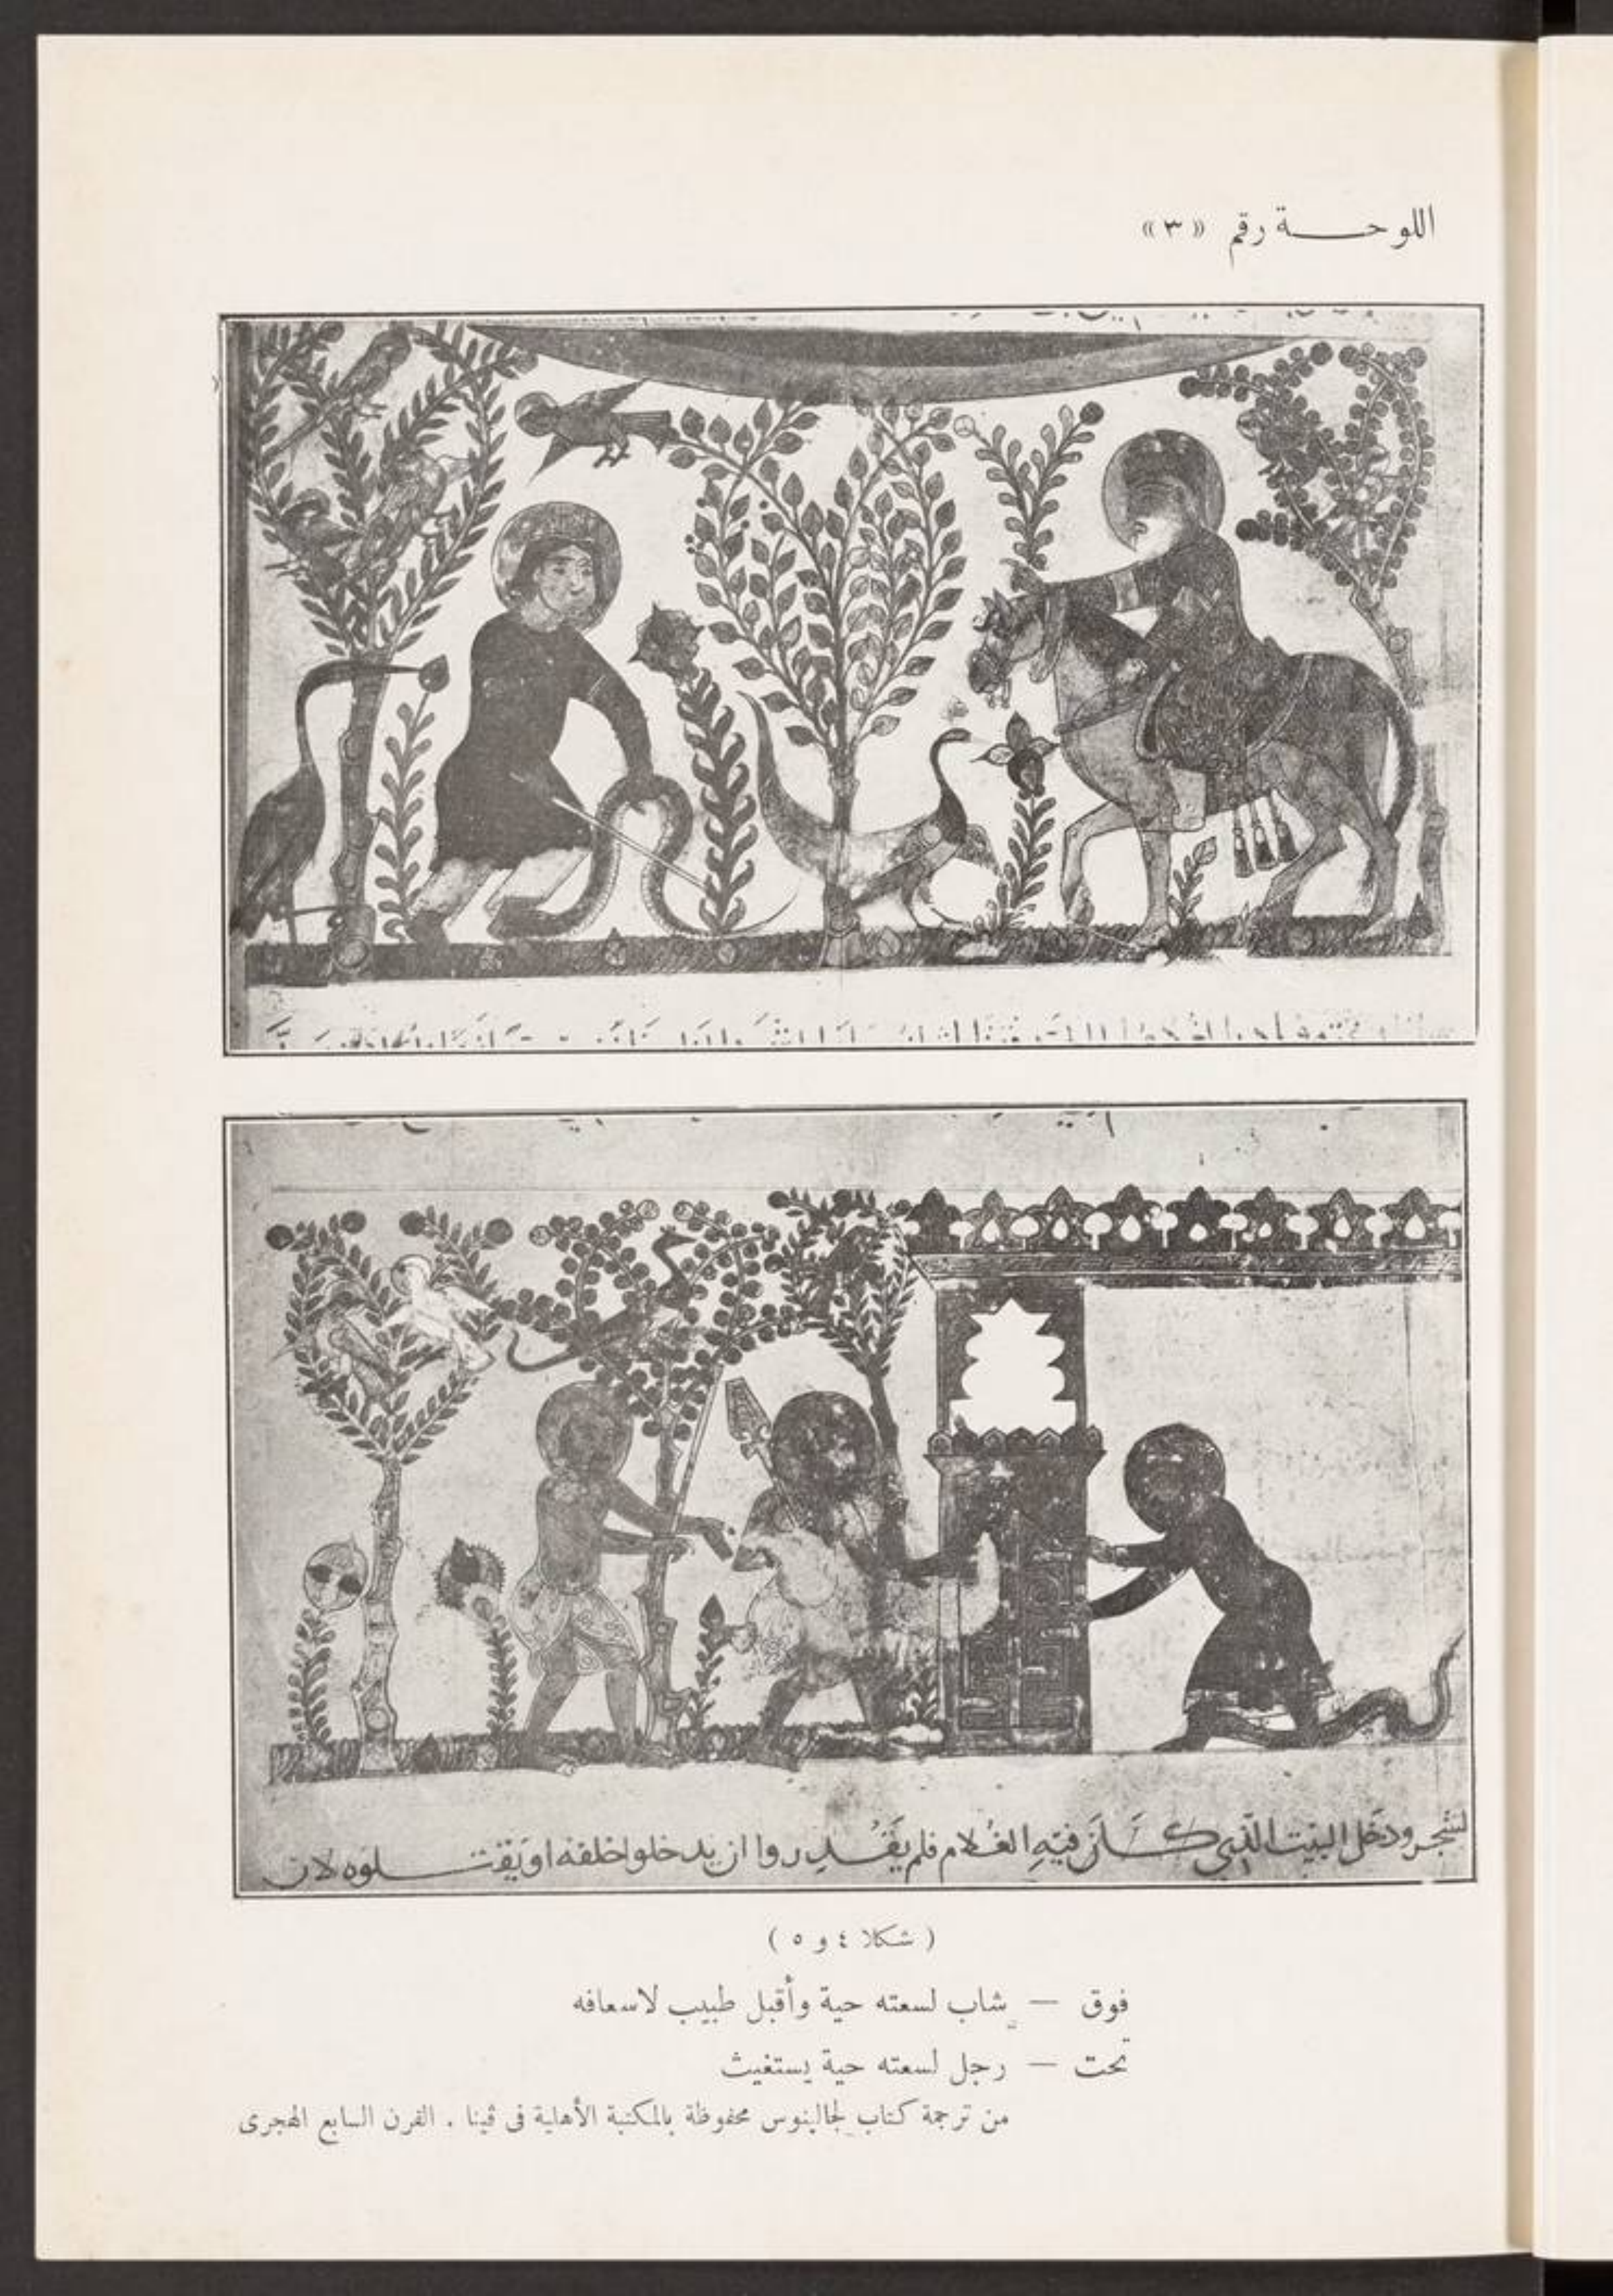 اللوحة رقم «٣»
لشجر ودخل البيت الذي كان فيه الغلام فلم يقدروا ان يدخلوا خلفه او يقتلوه لان
( شكلا ٤ و ٥ )
فوق — شاب لسعته حية وأقبل طبيب لاسعافه
تحت — رجل لسعته حية يستغيث
من ترجمة كتاب لجالينوس محفوظة بالمكتبة الأهلية فى ڤينا . القرن السابع الهجرى